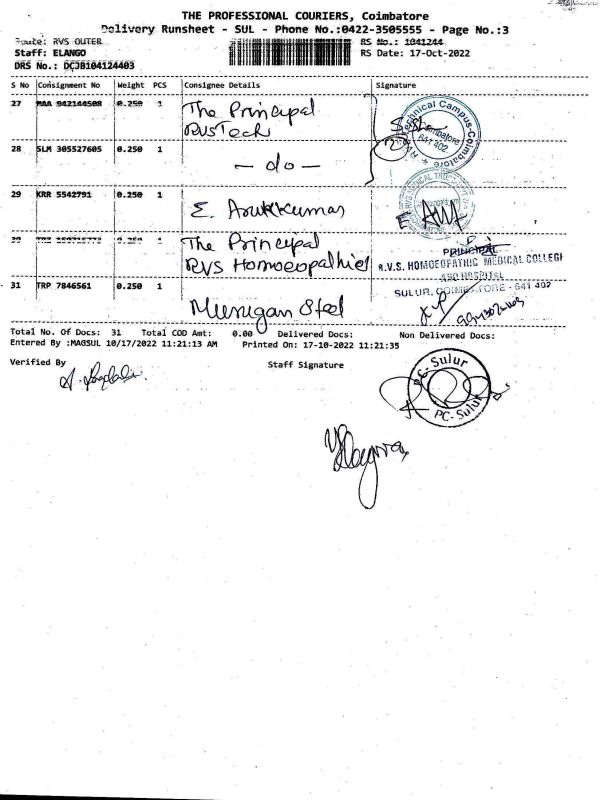 THE PROFESSIONAL COURIERS, Coimbatore
Delivery Runsheet - SUL - Phone No.:0422-3505555 - Page No.:3
Route: RVS OUTER
RS No.: 1041244
Staff: ELANGO
RS Date: 17-Oct-2022
DRS No.: DCJB104124403
S No Consignment No Weight PCS Consignee Details Signature
27 MAA 942144508 0.250 1 The Principal
RVSTech
28 SLM 305527605 0.250 1 - do -
29 KRR 5542791 0.250 1 E. Arukkumar
The Principal
RVS Homoeopathic
31 TRP 7846561 0.250 1 Murugan Steel
Technical Campus-Coimbatore
Coimbatore
641 402
PRINCIPAL
R.V.S. HOMOEOPATHIC MEDICAL COLLEGE
AND HOSPITAL
SULUR, COIMBATORE - 641 402
Total No. Of Docs: 31 Total COD Amt: 0.00 Delivered Docs: Non Delivered Docs:
Entered By :MAGSUL 10/17/2022 11:21:13 AM Printed On: 17-10-2022 11:21:35
Verified By
Staff Signature
PC-Sulur
PC-Sulur